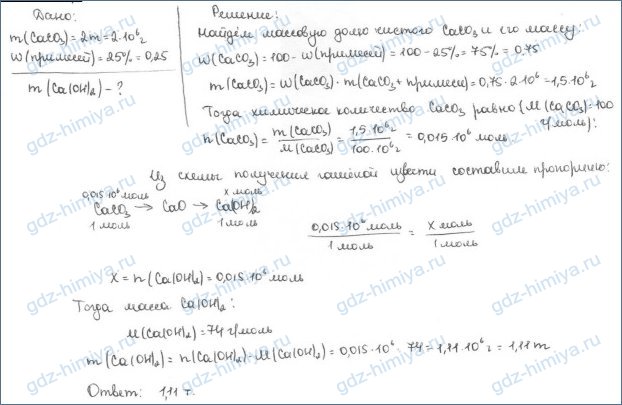 Дано:
m(CaCO₃) = 2т = 2·10⁶г
w(примесей) = 25% = 0,25
m(Ca(OH)₂) - ?
Решение:
Найдём массовую долю чистого CaCO₃ и его массу:
w(CaCO₃) = 100 - w(примесей) = 100 - 25% = 75% = 0,75
m(CaCO₃) = w(CaCO₃)·m(CaCO₃ + примеси) = 0,75·2·10⁶ = 1,5·10⁶г
Тогда химическое количество CaCO₃ равно (M(CaCO₃) = 100 г/моль):
n(CaCO₃) = m(CaCO₃)/M(CaCO₃) = 1,5·10⁶г/100·10⁶г = 0,015·10⁶ моль
Из схемы получения гашёной извести составим пропорцию:
0,015·10⁶ моль x моль
CaCO₃ → CaO → Ca(OH)₂
1 моль 1 моль
0,015·10⁶ моль/1 моль = x моль/1 моль
X = n(Ca(OH)₂) = 0,015·10⁶ моль
Тогда масса Ca(OH)₂:
M(Ca(OH)₂) = 74 г/моль
m(Ca(OH)₂) = n(Ca(OH)₂)·M(Ca(OH)₂) = 0,015·10⁶·74 = 1,11·10⁶г = 1,11 т
Ответ: 1,11 т.
gdz-himiya.ru